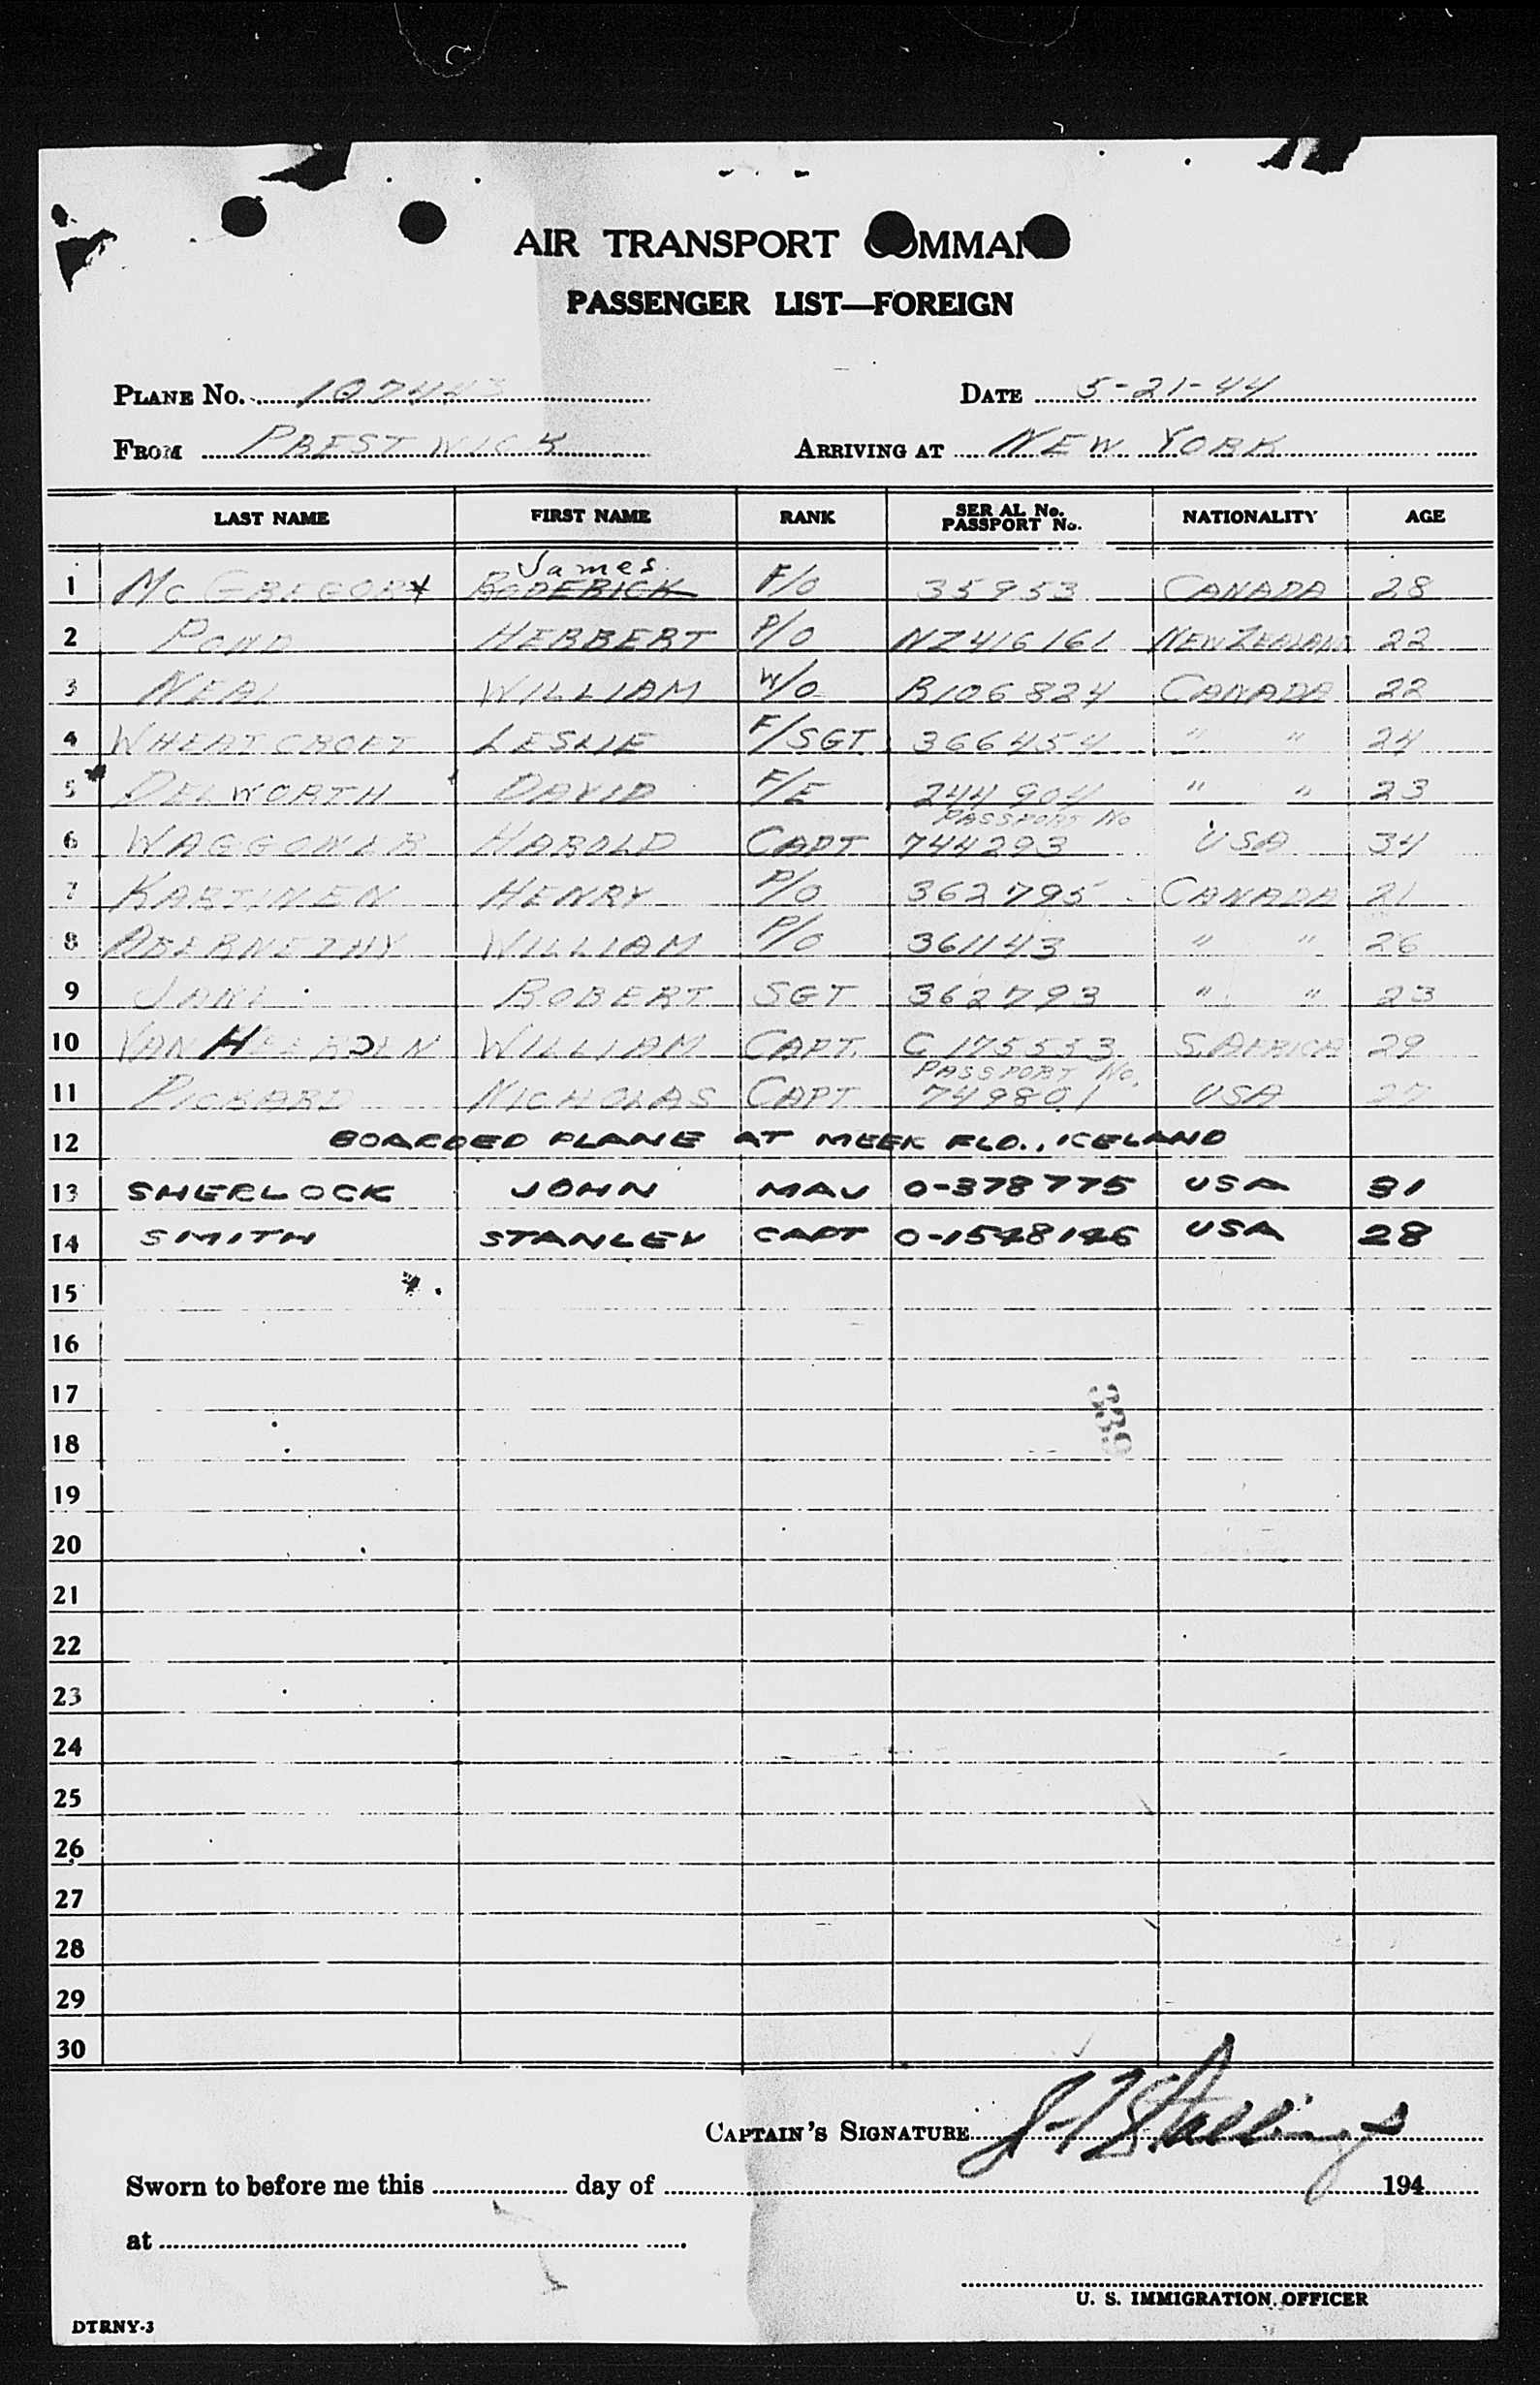 AIR TRANSPORT COMMAND
PASSENGER LIST—FOREIGN
PLANE No. 107443 DATE 5-21-44
FROM PRESTWICK ARRIVING AT NEW YORK
LAST NAME FIRST NAME RANK SERIAL No. PASSPORT No. NATIONALITY AGE
James
1 McGREGOR RODERICK F/O 35953 CANADA 28
2 POND HERBERT P/O NZ416161 NEW ZEALAND 22
3 NEAL WILLIAM W/O R106824 CANADA 22
4 WHEATCROFT LESLIE F/SGT 366454 " " 24
5 DELWORTH DAVID F/E 244904 " " 23
PASSPORT No
6 WAGGONER HAROLD CAPT 744293 USA 34
7 KARTINEN HENRY P/O 362795 CANADA 21
8 ABERNETHY WILLIAM P/O 361143 " " 26
9 ROBERT SGT 362793 " " 23
10 VAN HEERDEN WILLIAM CAPT. C 175553 S. AFRICA 29
PASSPORT No.
11 PICKARD NICHOLAS CAPT 749801 USA 27
12 BOARDED PLANE AT MEEK FLD., ICELAND
13 SHERLOCK JOHN MAJ O-378775 USA 31
14 SMITH STANLEY CAPT O-1548146 USA 28
15
16
17
339
18
19
20
21
22
23
24
25
26
27
28
29
30
CAPTAIN'S SIGNATURE Stallings
Sworn to before me this day of 194
at
U. S. IMMIGRATION OFFICER
DTRNY-3